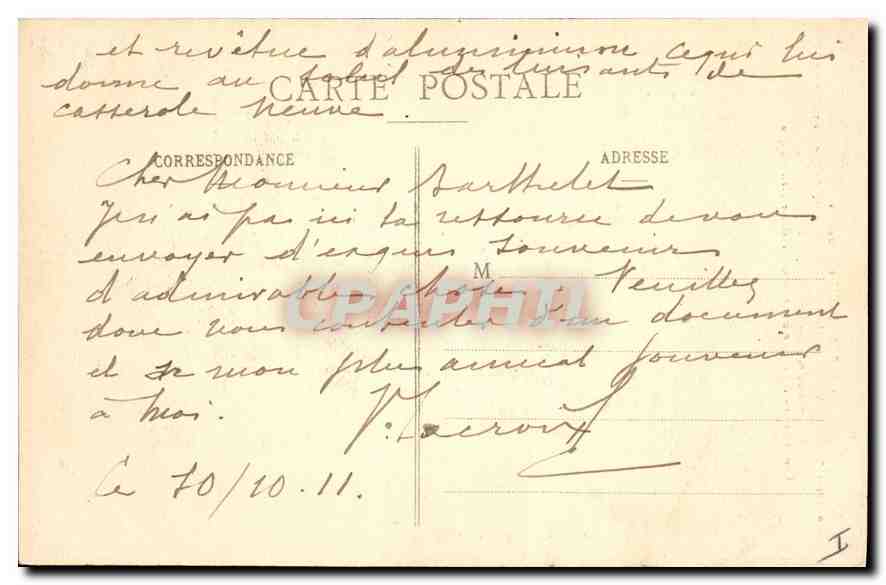 et revêtue d'aluminium ce qui lui
donne au soleil des luisants de
casserole neuve.
CARTE POSTALE
CORRESPONDANCE
ADRESSE
Cher Monsieur Barthelet
Je n'ai pas ici la ressource de vous
envoyer d'exquis souvenirs
M
d'admirables choses. Veuillez
CPAPHIL
donc vous contenter d'un document
et de mon plus amical souvenir
à moi. P. Lacroix
Ce 10/10.11.
I